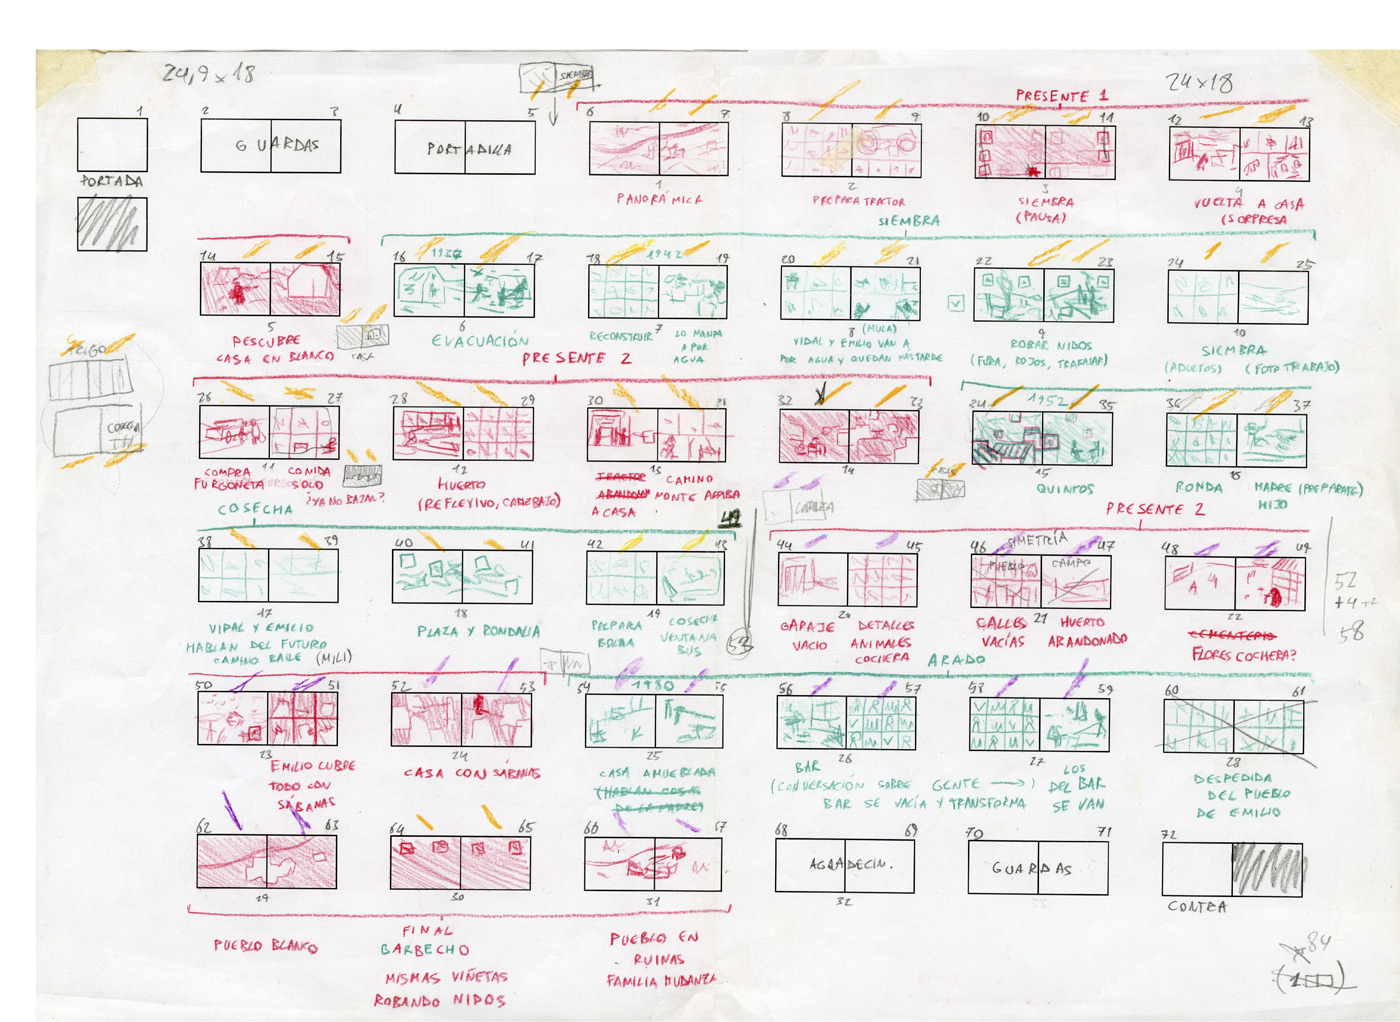 24,9 x 18
SIEMBRA
24 x 18
PRESENTE 1
1
2 3
4 5
6 7
8 9
10 11
12 13
GUARDAS
PORTADILLA
PORTADA
1
2
3
4
PANORÁMICA
PREPARA TRACTOR
SIEMBRA
(PAUSA)
VUELTA A CASA
(SORPRESA
SIEMBRA
14 15
16 1936 17
18 1942 19
20 21
22 23
24 25
5
6
7
8 (MULA)
9
10
DESCUBRE
CASA EN BLANCO
CASA
EVACUACIÓN
RECONSTRUIR
LO MANDA
A POR
AGUA
VIDAL Y EMILIO VAN A
POR AGUA Y QUEDAN MÁS TARDE
ROBAR NIDOS
(FURA, ROJOS, TRABAJAR)
SIEMBRA
(ADULTOS) (FOTO TRABAJO)
TRIGO
COSECHA
PRESENTE 2
26 27
28 29
30 31
32 33
34 1952 35
36 37
11
12
13
14
15
16
COMPRA
FURGONETA
COMIDA
SOLO
¿YA NO BAJAN?
HUERTO
(REFLEXIVO, CANGREJO)
TRACTOR
ABANDON
A CASA
CAMINO
MONTE ARRIBA
QUINTOS
RONDA
MADRE (PREPARATE)
HIJO
COSECHA
49
PRESENTE 2
38 39
40 41
42 43
44 45
46 47
48 49
SIMETRÍA
PUEBLO CAMPO
17
18
19
20
21
22
VIDAL Y EMILIO
HABLAN DEL FUTURO
CAMINO BAILE (MILI)
PLAZA Y RONDALLA
PREPARA
BOLSA
COSECHA
VENTANA
BUS
GARAJE
VACIO
DETALLES
ANIMALES
COCHERA
CALLES
VACÍAS
HUERTO
ABANDONADO
CEMENTERIO
FLORES COCHERA?
52
58
ARADO
50 51
52 53
54 1980 55
56 57
58 59
60 61
23
24
25
26
27
28
EMILIO CUBRE
TODO CON
SÁBANAS
CASA CON SÁBANAS
CASA AMUEBLADA
(HABLAN COSAS
DE LA PADRE)
BAR
(CONVERSACIÓN SOBRE GENTE →)
BAR SE VACÍA Y TRANSFORMA
LOS
DEL BAR
SE VAN
DESPEDIDA
DEL PUEBLO
DE EMILIO
62 63
64 65
66 67
68 69
70 71
72
AGRADECIN.
GUARDAS
CONTRA
29
30
31
32
33
PUEBLO BLANCO
FINAL
BARBECHO
MISMAS VIÑETAS
ROBANDO NIDOS
PUEBLO EN
RUINAS
FAMILIA MUDANZA
84